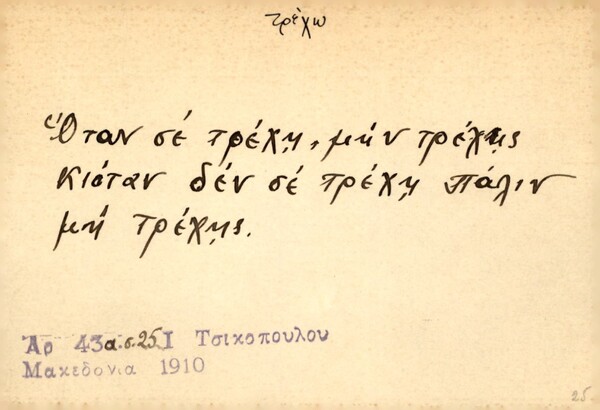 τρέχω
Ὅταν σέ τρέχῃ, μήν τρέχῃς
κιὅταν δέν σέ τρέχῃ πάλιν
μή τρέχῃς.
Αρ 43α.σ.25 Ι Τσικοπουλου
Μακεδονια 1910
25